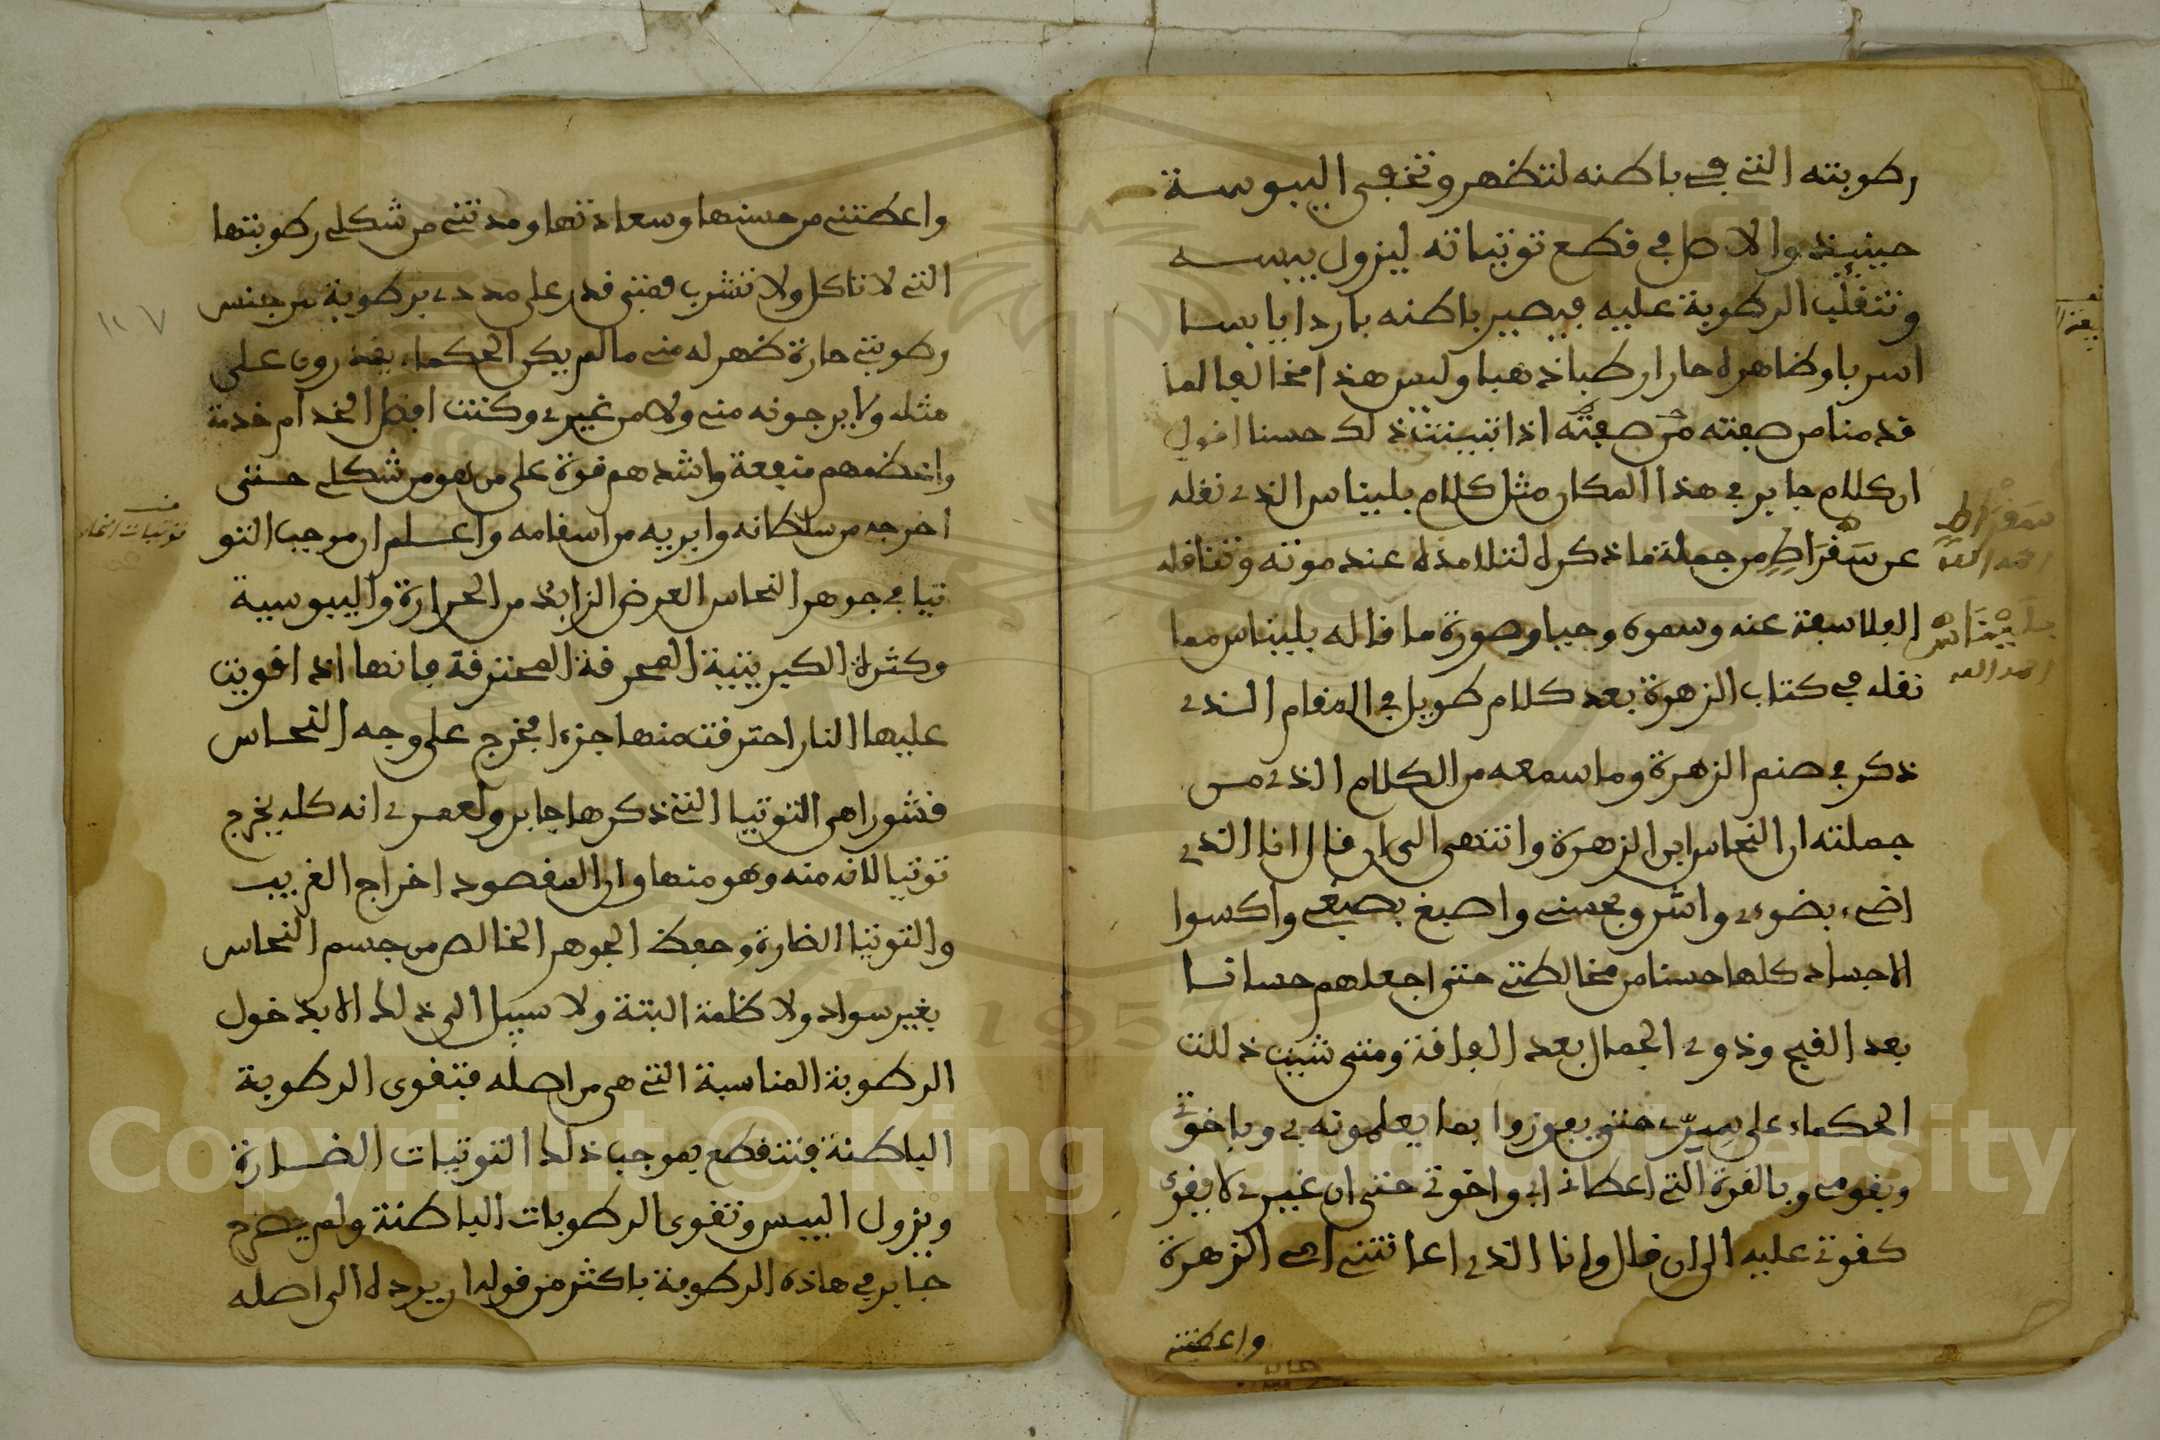 رطوبته التي في باطنه لتظهر وتخفى اليبوسة
حينئذ والاصل في قطع توتياته ليزول يبسه
وتتغلب الرطوبة عليه فيصير باطنه باردا يابسا
اسربا وظاهره حارا رطبا ذهبا وليس هذا مخالفا لما
قدمنا من صفته من صفته اذا تبينت ذلك حسنا اقول
ان كلام جابر في هذا المكان مثل كلام بليناس الذي نقله
عن سقراط من جملة ما ذكره لتلامذه عند موته وتناقله
الفلاسفة عنه وسموه وحيا وصورة ما قاله بليناس مما
نقله في كتاب الزهرة بعد كلام طويل في المقام الذي
ذكر في صنم الزهرة وما سمعه من الكلام الذي من
جملته ان النحاس ابن الزهرة وانتهى الى ان قال انا الذي
اضيء بضوءي واشرق بحسني واصبغ بصبغي واكسوا
الاجساد كلها حسنا من مخالطتي حتى اجعلهم حسانا
بعد القبح وذوي الجمال بعد العرافة ومتى شيت ذللت
الحكماء على سري حتى يفوزوا بما يعلمونه بي وباخوتي
وبقومي وبالقوة التي اعطاني ابي واخوتي حتى ان غيري لا يقوى
كقوتي عليه الى ان قال وانا الذي اعانتني امي الزهرة
واعطتني
سقراط
رحمه الله
بليناس
رحمه الله
واعطتني من حسنها وسعادتها ومدتني من شكلي رطوبتها
التي لا تاكل ولا تشرب فمتى قدر على مددي برطوبة من جنس
رطوبتي حارة ظهر له مني ما لم يكن الحكماء يقدرون على
مثله ولا يرجونه مني ولا من غيري وكنت افضل الخدام خدمة
واعظمهم منفعة واشدهم قوة على من هو من شكلي حتى
اخرجه من سلطانه وابريه من اسقامه واعلم ان موجب التو
تيا في جوهر النحاس العرض الزايد من الحرارة واليبوسية
وكثرة الكبريتية المحرقة المحترقة فانها اذا قويت
عليها النار احترقت منها جزء فخرج على وجه النحاس
قشورا هي التوتيا التي ذكرها جابر ولعمري انه كله يخرج
توتيا لانه منه وهو منها وان المقصود اخراج الغريب
والتوتيا الضارة وحفظ الجوهر الخالص من جسم النحاس
بغير سواد ولا ظلمة البتة ولا سبيل الى ذلك الا بدخول
الرطوبة المناسبة التي هي من اصله فتقوى الرطوبة
الباطنة فتنقطع بموجب ذلك التوتيات الضارة
ويزول اليبس وتقوى الرطوبات الباطنة ولم يصرح
جابر في هاذه الرطوبة باكثر من قوله ان يرده الى اصله
توتيات النحاس